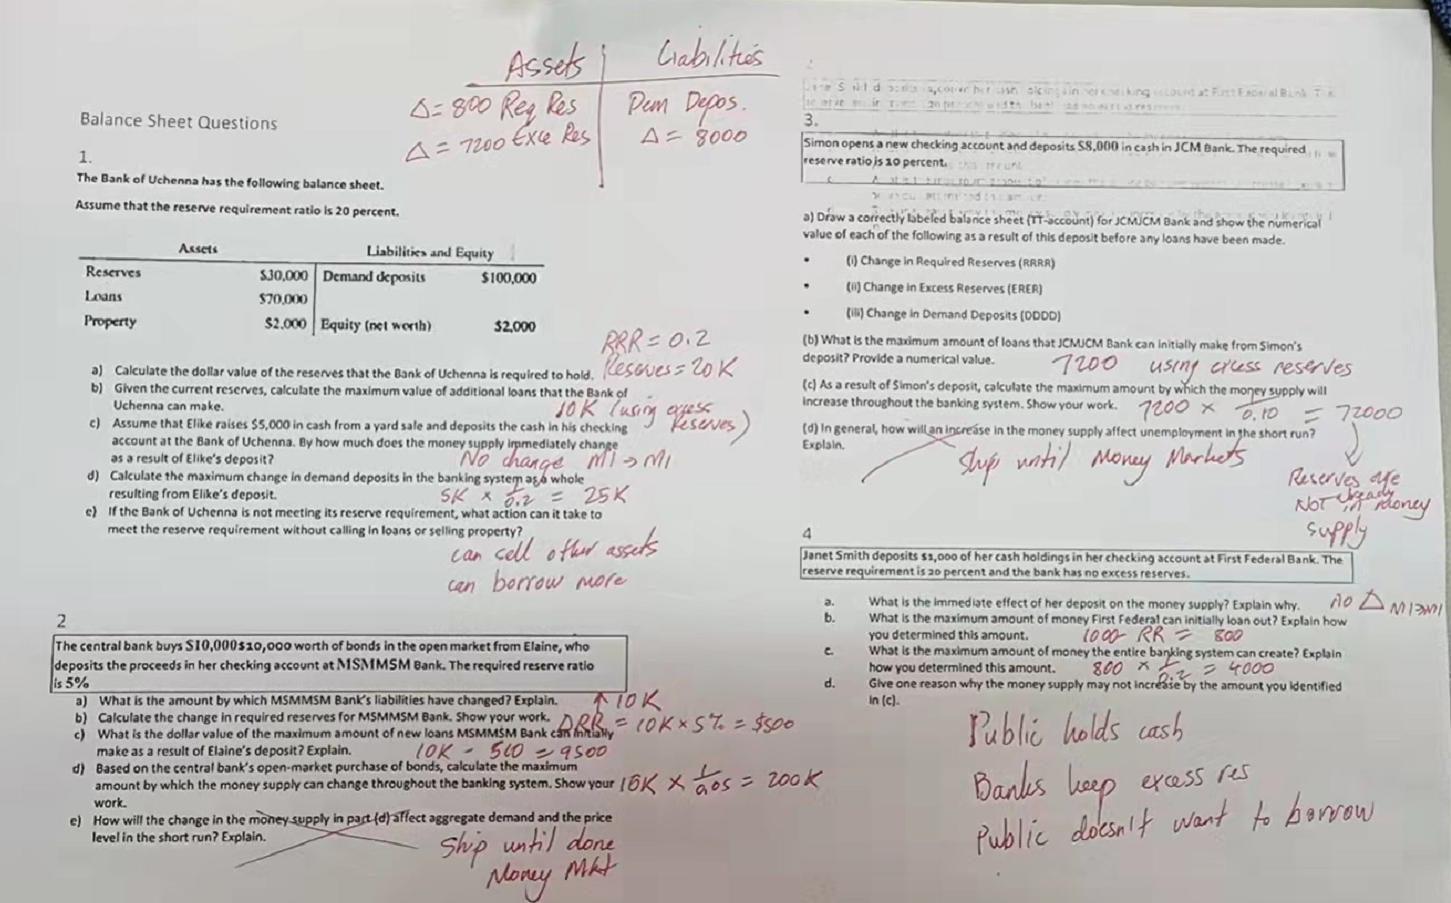 Assets Liabilities
Δ= 800 Req Res Dem Depos.
Δ= 7200 Exce Res Δ= 8000
Balance Sheet Questions
1.
The Bank of Uchenna has the following balance sheet.
Assume that the reserve requirement ratio is 20 percent.
Assets Liabilities and Equity
Reserves $30,000 Demand deposits $100,000
Loans $70,000
Property $2,000 Equity (net worth) $2,000
RRR = 0.2
a) Calculate the dollar value of the reserves that the Bank of Uchenna is required to hold. Reserves = 20K
b) Given the current reserves, calculate the maximum value of additional loans that the Bank of
Uchenna can make. 10K (using excess Reserves)
c) Assume that Elike raises $5,000 in cash from a yard sale and deposits the cash in his checking
account at the Bank of Uchenna. By how much does the money supply immediately change
as a result of Elike's deposit? No change M1→M1
d) Calculate the maximum change in demand deposits in the banking system as a whole
resulting from Elike's deposit. 5K × 1/0.2 = 25K
e) If the Bank of Uchenna is not meeting its reserve requirement, what action can it take to
meet the reserve requirement without calling in loans or selling property?
can sell other assets
can borrow more
2
The central bank buys $10,000$10,000 worth of bonds in the open market from Elaine, who
deposits the proceeds in her checking account at MSMMSM Bank. The required reserve ratio
is 5%
a) What is the amount by which MSMMSM Bank's liabilities have changed? Explain. ↑ 10K
b) Calculate the change in required reserves for MSMMSM Bank. Show your work. ΔRR = 10K × 5% = $500
c) What is the dollar value of the maximum amount of new loans MSMMSM Bank can initially
make as a result of Elaine's deposit? Explain. 10K - 500 = 9500
d) Based on the central bank's open-market purchase of bonds, calculate the maximum
amount by which the money supply can change throughout the banking system. Show your 10K × 1/0.05 = 200K
work.
e) How will the change in the money supply in part (d) affect aggregate demand and the price
level in the short run? Explain.
Skip until done
Money Mkt
3.
Simon opens a new checking account and deposits $8,000 in cash in JCM Bank. The required
reserve ratio is 10 percent.
a) Draw a correctly labeled balance sheet (TT-account) for JCMJCM Bank and show the numerical
value of each of the following as a result of this deposit before any loans have been made.
• (i) Change in Required Reserves (RRRR)
• (ii) Change in Excess Reserves (ERER)
• (iii) Change in Demand Deposits (DDDD)
(b) What is the maximum amount of loans that JCMJCM Bank can initially make from Simon's
deposit? Provide a numerical value. 7200 using excess reserves
(c) As a result of Simon's deposit, calculate the maximum amount by which the money supply will
increase throughout the banking system. Show your work. 7200 × 1/0.10 = 72000
(d) In general, how will an increase in the money supply affect unemployment in the short run?
Explain. Skip until Money Markets
Reserves are
Not already in money
supply
4
Janet Smith deposits $1,000 of her cash holdings in her checking account at First Federal Bank. The
reserve requirement is 20 percent and the bank has no excess reserves.
a. What is the immediate effect of her deposit on the money supply? Explain why. no Δ M1→M1
b. What is the maximum amount of money First Federal can initially loan out? Explain how
you determined this amount. 1000- RR = 800
c. What is the maximum amount of money the entire banking system can create? Explain
how you determined this amount. 800 × 1/0.2 = 4000
d. Give one reason why the money supply may not increase by the amount you identified
in (c).
Public holds cash
Banks keep excess res
Public doesn't want to borrow